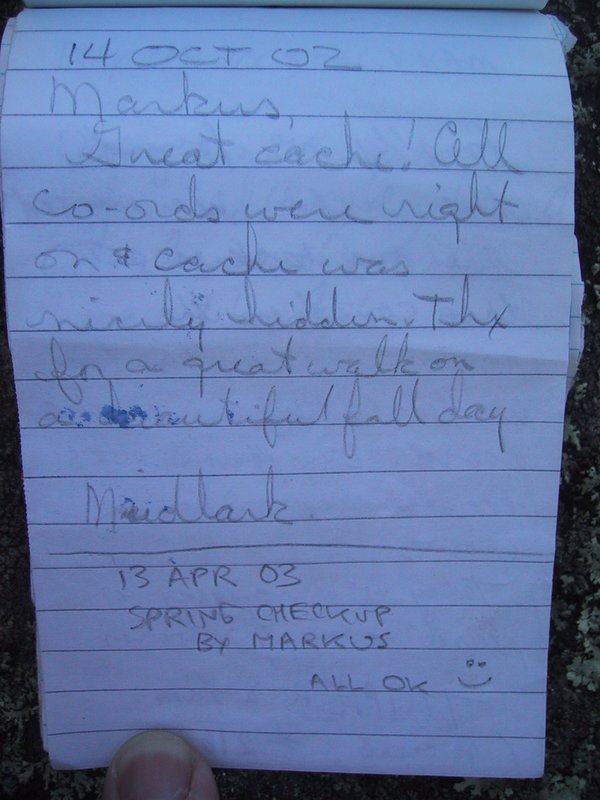 14 OCT 02
Markus,
Great cache! All
co-ords were right
on & cache was
nicely hidden. Thx
for a great walk on
a beautiful fall day
Mudlark
13 APR 03
SPRING CHECKUP
BY MARKUS
ALL OK